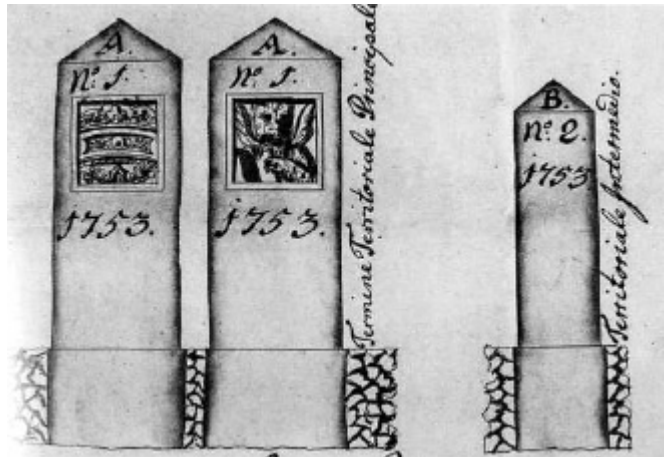 A.
Nº. 1.
1753.
A.
Nº. 1.
1753.
Termine Territoriale Principale
B.
Nº. 2.
1753
Territoriale Intermedio.